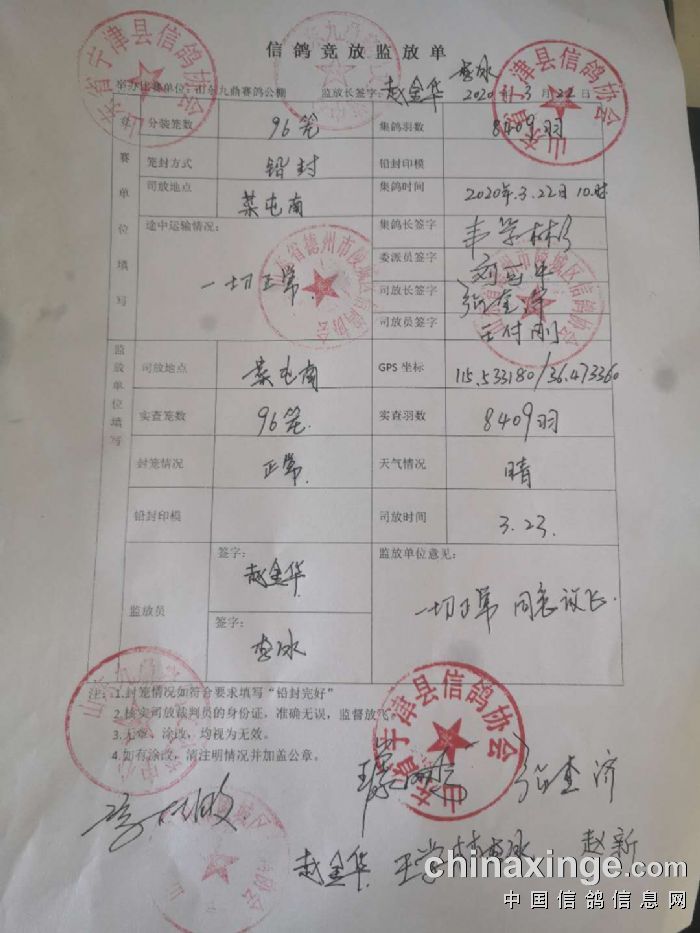 信鸽竞放监放单
举办比赛单位：山东九鼎赛鸽公棚 监放长签字： 赵金华 李冰 2020年3月22日
赛单位填写
分装笼数 96笼 集鸽羽数 8409羽
笼封方式 铅封 铅封印模
司放地点 菜屯南 集鸽时间 2020年.3.22日10.时
途中运输情况： 一切正常. 集鸽长签字
委派员签字
司放长签字
司放员签字 王付刚
监放单位填写
司放地点 菜屯南 GPS 坐标 115.533180/36.473360
实查笼数 96笼. 实查羽数 8409羽
封笼情况 正常. 天气情况 晴
铅封印模 司放时间 3.23.
监放员 签字： 赵金华 监放单位意见：
签字： 李冰 一切正常 同意放飞.
注：1.封笼情况如符合要求填写“铅封完好”
2.核实司放裁判员的身份证，准确无误，监督放飞。
3.无章、涂改，均视为无效。
4.如有涂改，请注明情况并加盖公章。
赵金华 李冰 赵新
山东省宁津县信鸽协会
山东省宁津县信鸽协会
山东省宁津县信鸽协会
chinaxinge.com
中国信鸽信息网